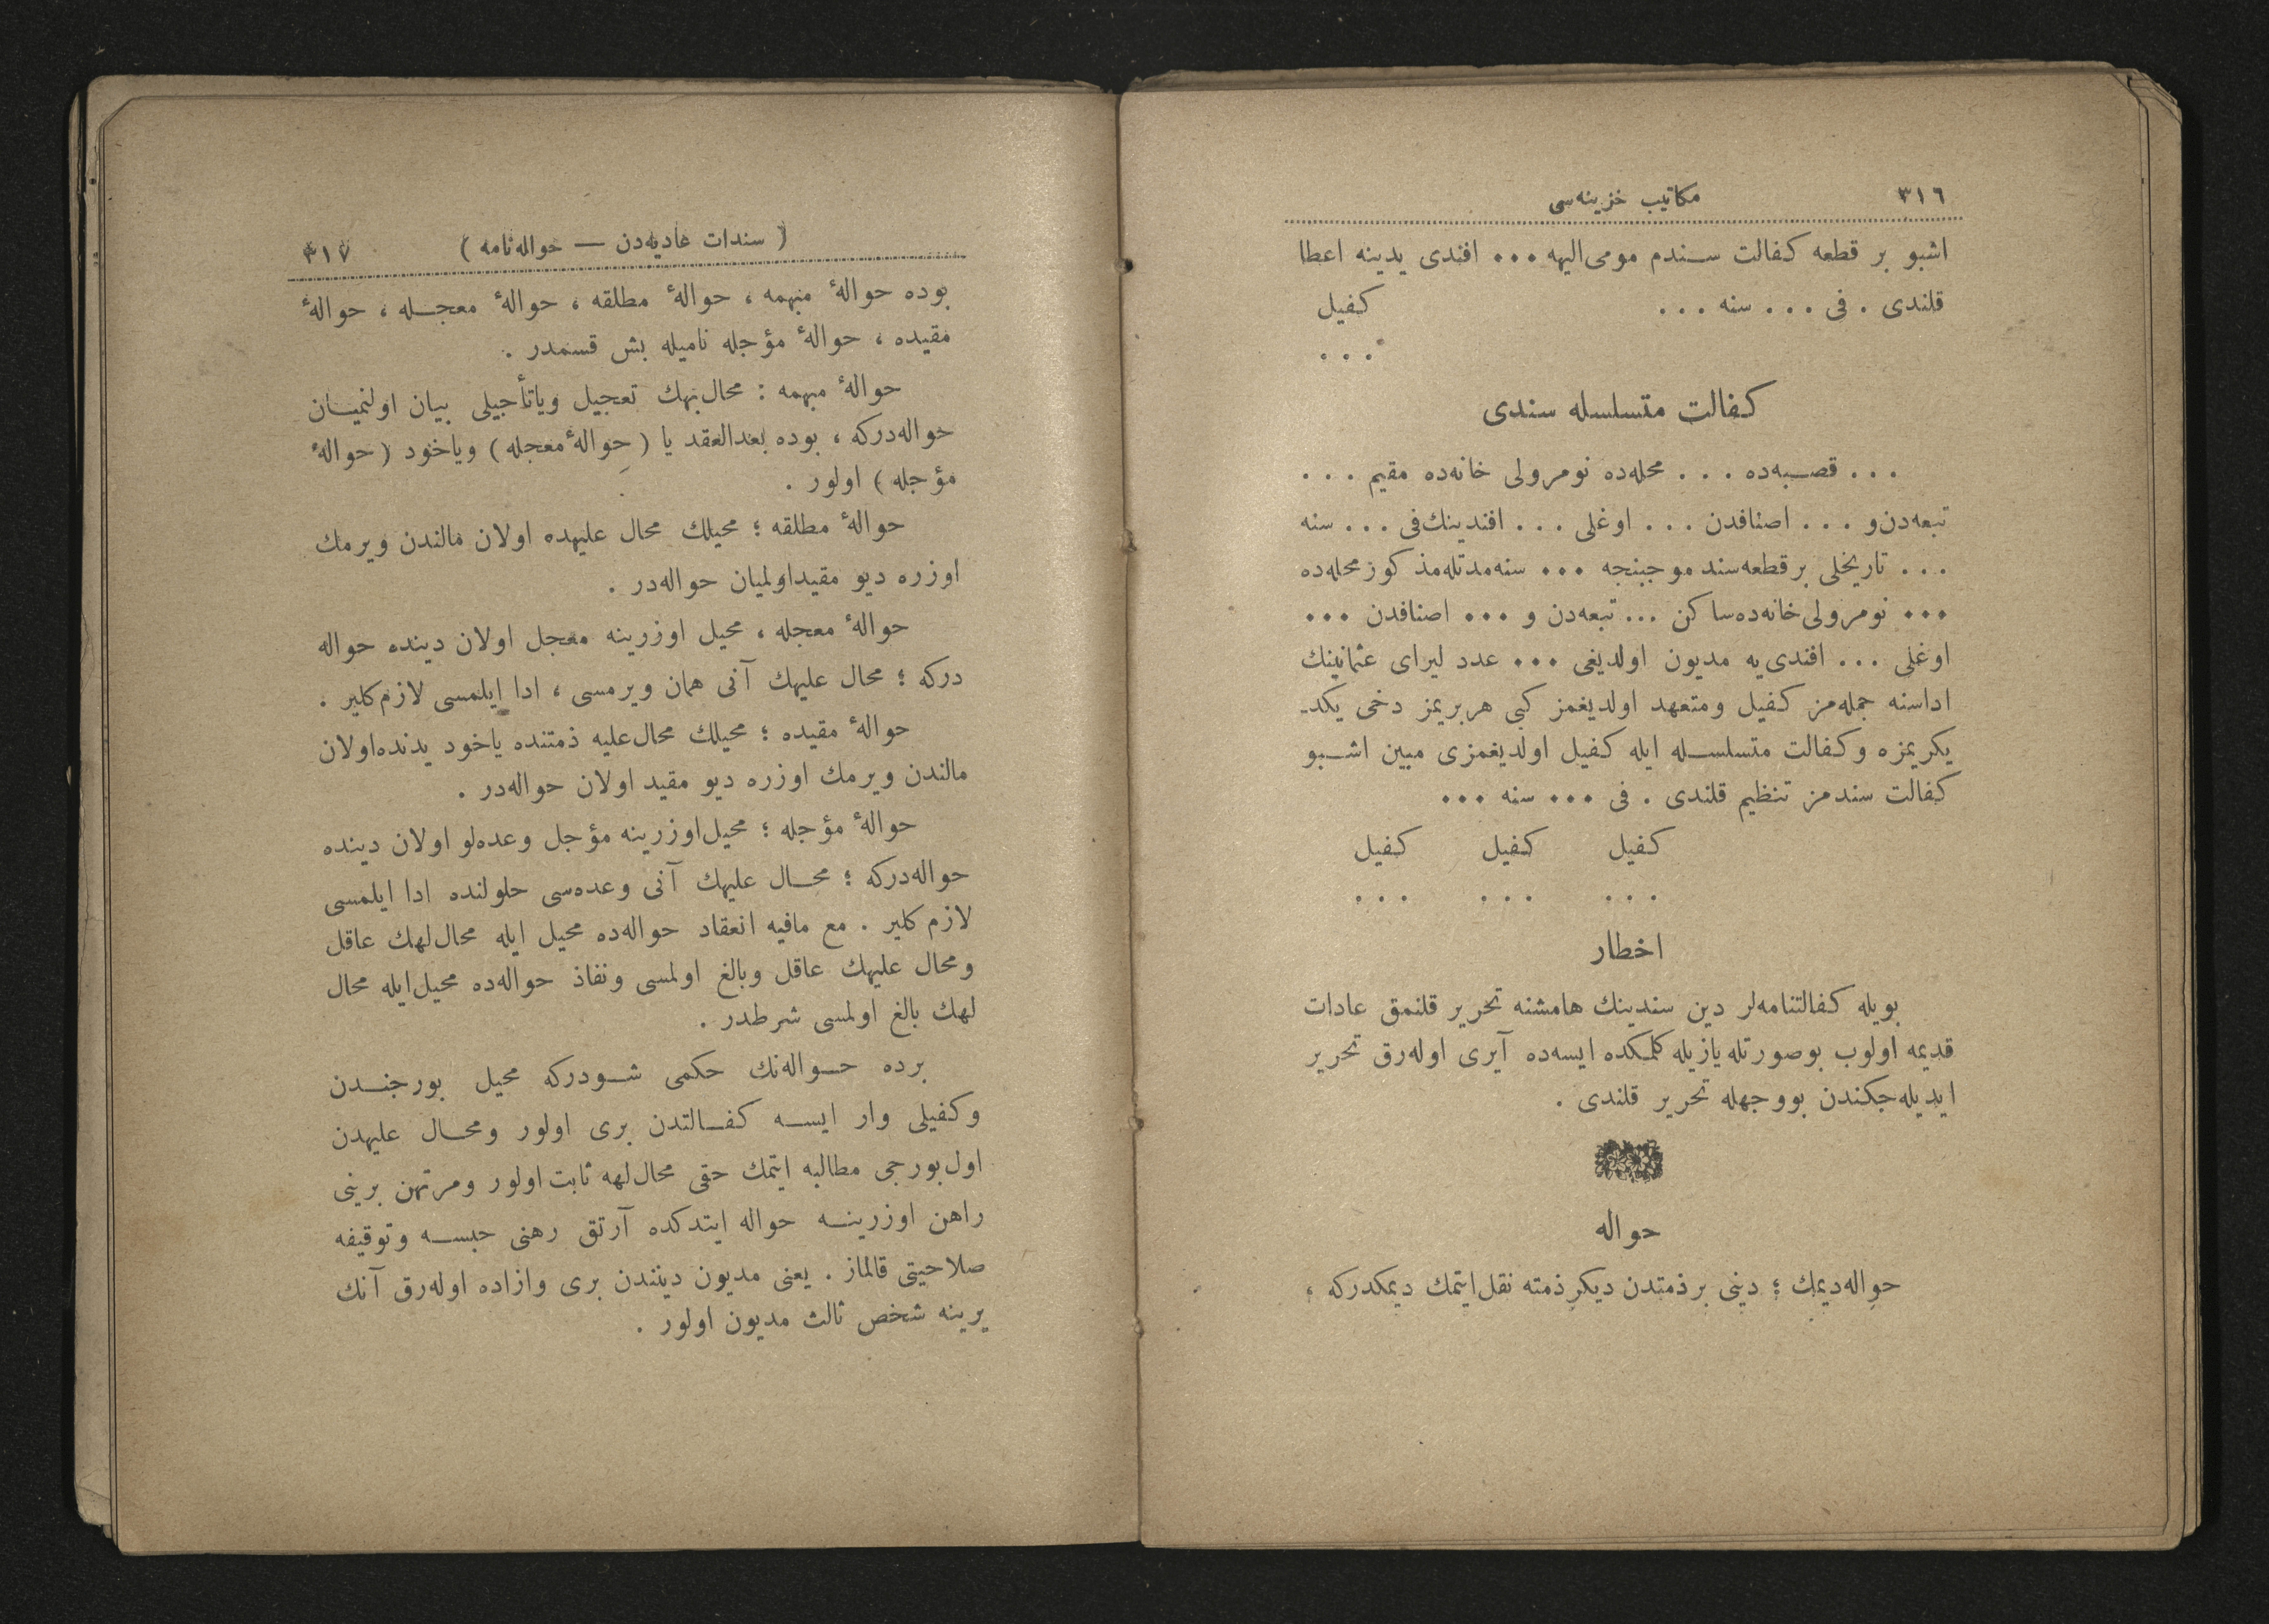 ٣١٦ مكاتيب خزينه‌سى
اشبو بر قطعه كفالت سندم مومى‌اليهه ... افندى يدينه اعطا
قلندى . فى ... سنه ... كفيل
...
كفالت متسلسله سندى
... قصبه‌ده ... محله‌ده نومرولى خانه‌ده مقيم ...
تبعه‌دن‌و ... اصنافدن ... اوغلى ... افندينك‌فى ... سنه
... تاريخلى برقطعه‌سند موجبنجه ... سنه‌مدتله‌مذكور محله‌ده
... نومرولى‌خانه‌ده‌ساكن ... تبعه‌دن و ... اصنافدن ...
اوغلى ... افندى‌يه مديون اولديغى ... عدد ليراى عثمانينك
اداسنه جمله‌مز كفيل ومتعهد اولديغمز كبى هربريمز دخى يكد-
يكريمزه وكفالت متسلسله ايله كفيل اولديغمزى مبين اشبو
كفالت سندمز تنظيم قلندى . فى ... سنه ...
كفيل كفيل كفيل
... ... ...
اخطار
بويله كفالتنامه‌لر دين سندينك هامشنه تحرير قلنمق عادات
قديمه اولوب بوصورتله يازيله‌كلمكده ايسه‌ده آيرى اوله‌رق تحرير
ايديله‌جكندن بووجهله تحرير قلندى .
حواله
حواله‌ديمك ؛ دينى برذمتدن ديكرذمته نقل‌ايتمك ديمكدركه ؛
( سندات عاديه‌دن — حواله‌نامه ) ٣١٧
بوده حوالهٔ مبهمه ، حوالهٔ مطلقه ، حوالهٔ معجله ، حوالهٔ
مقيده ، حوالهٔ مؤجله ناميله بش قسمدر .
حوالهٔ مبهمه : محال‌بهك تعجيل وياتأجيلى بيان اولنميان
حواله‌دركه ، بوده بعدالعقد يا ( حوالهٔ معجله ) وياخود ( حوالهٔ
مؤجله ) اولور .
حوالهٔ مطلقه ؛ محيلك محال عليهده اولان مالندن ويرمك
اوزره ديو مقيداولميان حواله‌در .
حوالهٔ معجله ، محيل اوزرينه معجل اولان دينده حواله
دركه ؛ محال عليهك آنى همان ويرمسى ، ادا ايلمسى لازم‌كلير .
حوالهٔ مقيده ؛ محيلك محال‌عليه ذمتنده ياخود يدنده‌اولان
مالندن ويرمك اوزره ديو مقيد اولان حواله‌در .
حوالهٔ مؤجله ؛ محيل‌اوزرينه مؤجل وعده‌لو اولان دينده
حواله‌دركه ؛ محال عليهك آنى وعده‌سى حلولنده ادا ايلمسى
لازم كلير . مع مافيه انعقاد حواله‌ده محيل ايله محال‌لهك عاقل
ومحال عليهك عاقل وبالغ اولمسى ونفاذ حواله‌ده محيل‌ايله محال
لهك بالغ اولمسى شرطدر .
برده حواله‌نك حكمى شودركه محيل بورجندن
وكفيلى وار ايسه كفالتدن برى اولور ومحال عليهدن
اول‌بورجى مطالبه ايتمك حقى محال‌لهه ثابت‌اولور ومرتهن برينى
راهن اوزرينه حواله ايتدكده آرتق رهنى حبسه وتوقيفه
صلاحيتى قالماز . يعنى مديون دينندن برى وازاده اوله‌رق آنك
يرينه شخص ثالث مديون اولور .